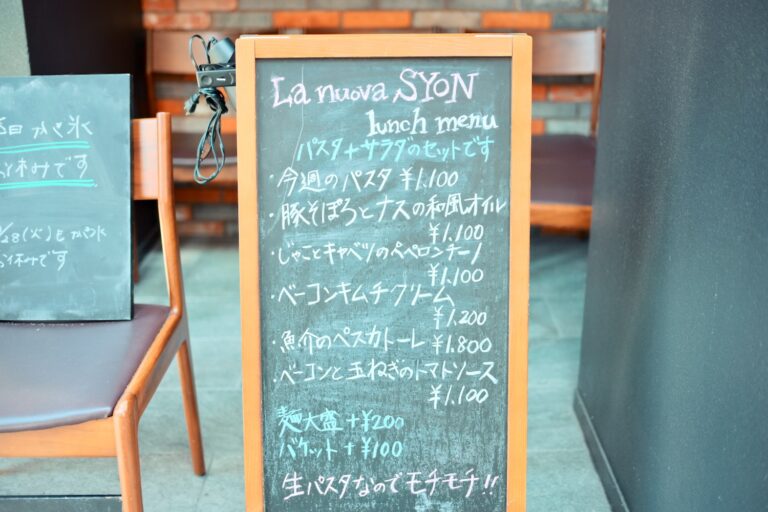 La nuova SYON
lunch menu
パスタ+サラダのセットです
・今週のパスタ ¥1.100
・豚そぼろとナスの和風オイル
¥1.100
・じゃことキャベツのペペロンチーノ
¥1.100
・ベーコンキムチクリーム
¥1.200
・魚介のペスカトーレ ¥1.800
・ベーコンと玉ねぎのトマトソース
¥1.100
麺大盛+¥200
バケット+¥100
生パスタなのでモチモチ!!
日かき氷
お休みです
/28(火)もかき氷
お休みです